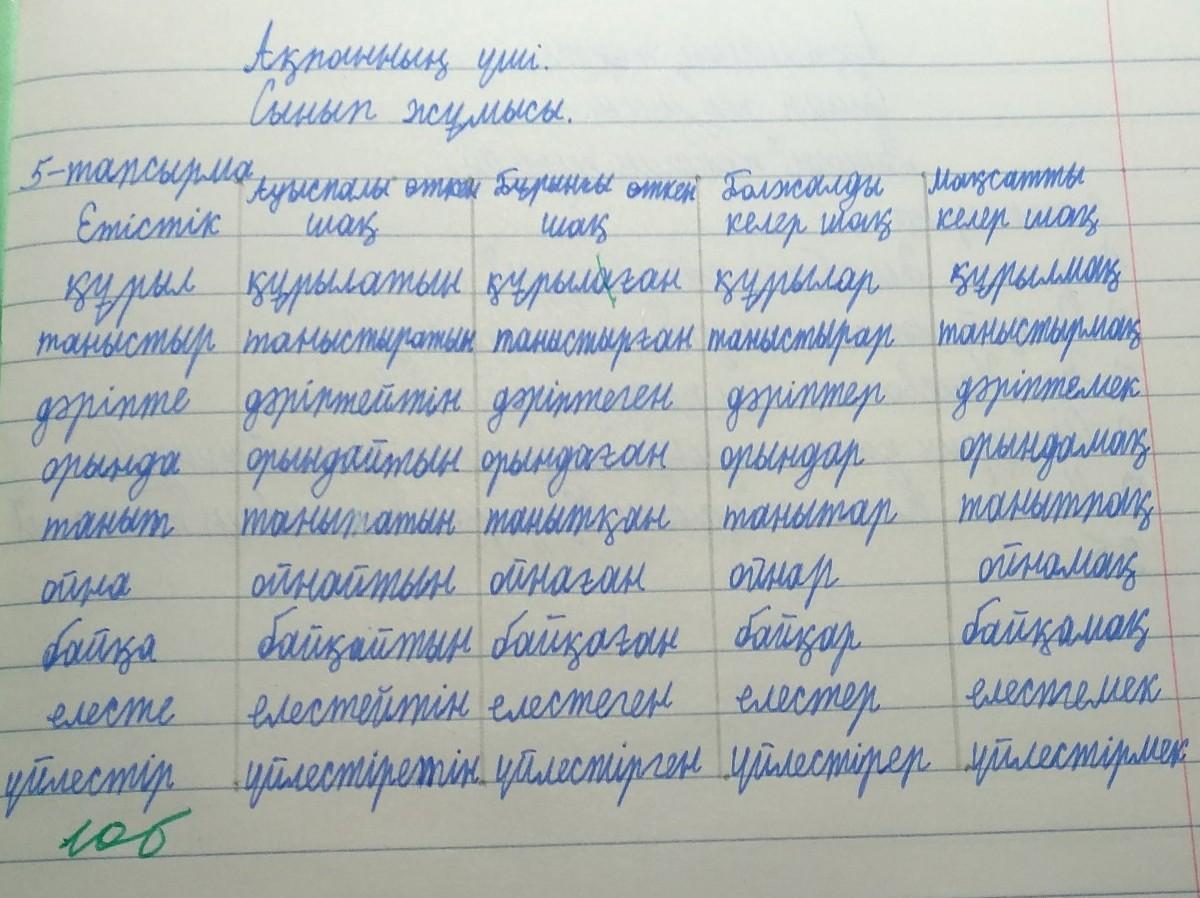 Ақпанның үші.
Сынып жұмысы.
5-тапсырма
Етістік Ауыспалы өткен шақ Бұрынғы өткен шақ Болжалды келер шақ Мақсатты келер шақ
құрыл құрылатын құрылаған құрылар құрылмақ
таныстыр таныстыратын таныстырған таныстырар таныстырмақ
дәріпте дәріптейтін дәріптеген дәріптер дәріптемек
орында орындайтын орындаған орындар орындамақ
таныт танытатын танытқан танытар танытпақ
ойна ойнайтын ойнаған ойнар ойнамақ
байқа байқайтын байқаған байқар байқамақ
елесте елестейтін елестеген елестер елестемек
үйлестір үйлестіретін үйлестірген үйлестірер үйлестірмек
10б